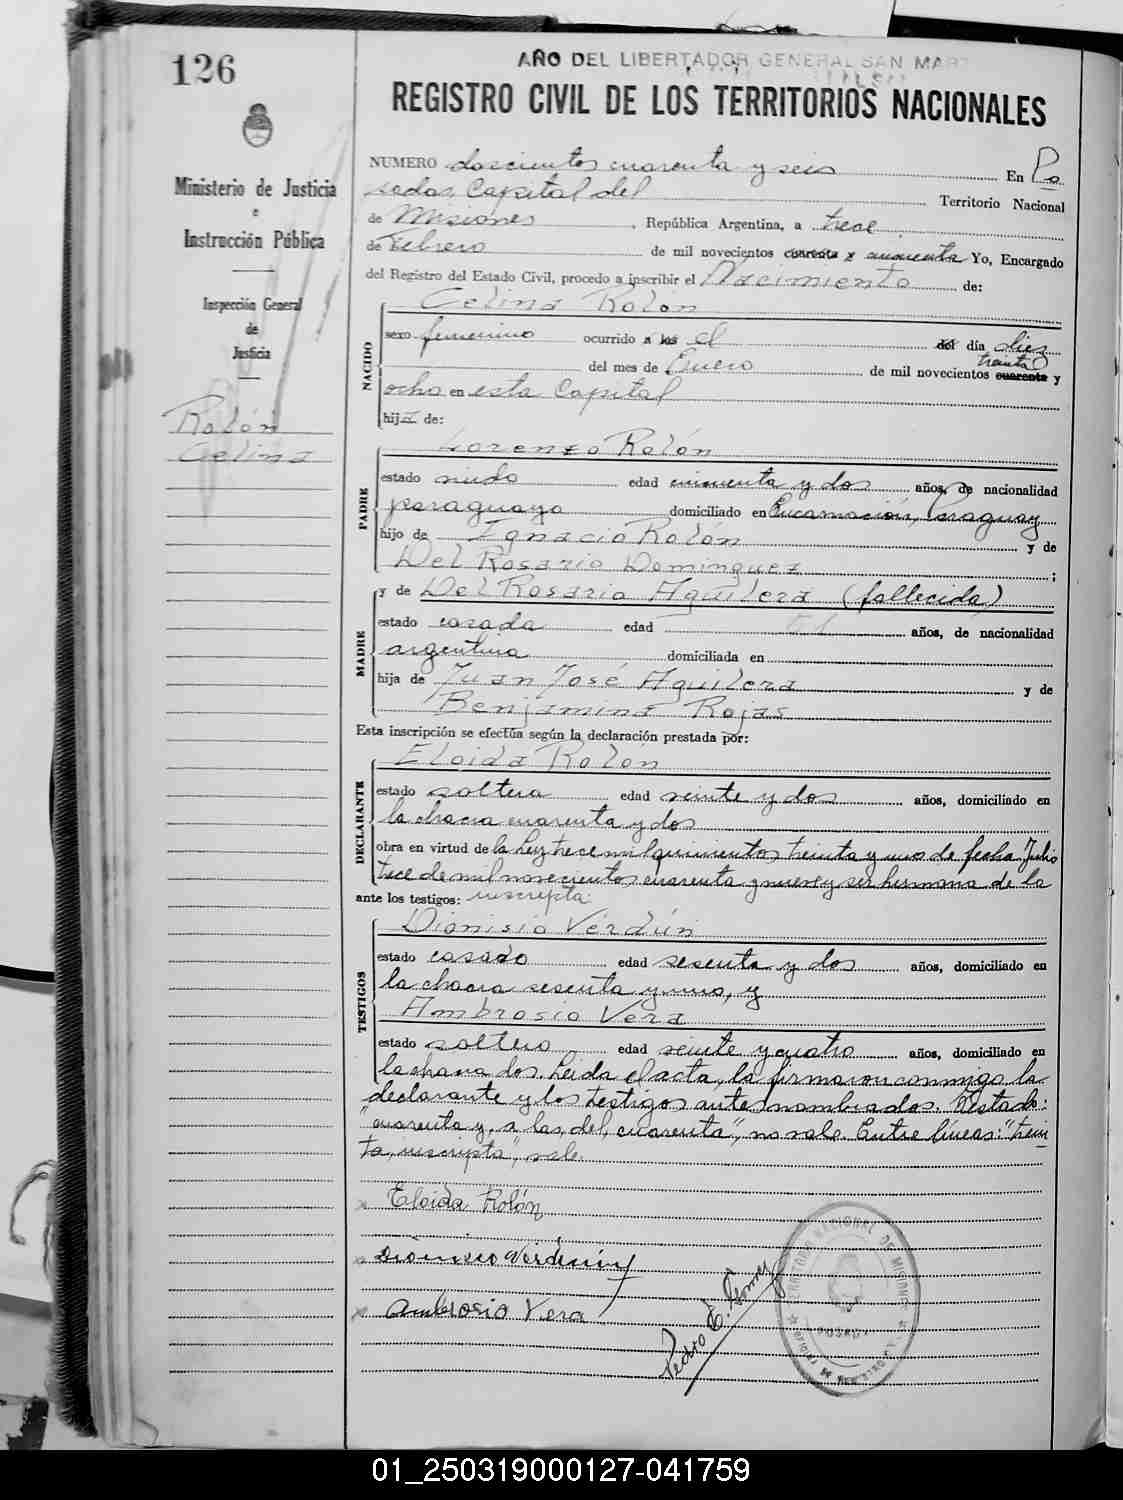 126
AÑO DEL LIBERTADOR GENERAL SAN MART
REGISTRO CIVIL DE LOS TERRITORIOS NACIONALES
Ministerio de Justicia
e
Instrucción Pública
Inspección General
de
Justicia
Rolón
Celina
NUMERO doscientos cuarenta y seis En Po
sadas Capital del Territorio Nacional
de Misiones, República Argentina, a trece
de Febrero de mil novecientos cuarenta y cincuenta Yo, Encargado
del Registro del Estado Civil, procedo a inscribir el Nacimiento de:
NACIDO
Celina Rolon
sexo femenino ocurrido a las el del día diez
treinta
del mes de Enero de mil novecientos cuarenta y
ocho en esta Capital
hija de:
PADRE
Lorenzo Rolón
estado viudo edad cincuenta y dos años, de nacionalidad
paraguaya domiciliado en Encarnación, Paraguay
hijo de Ignacio Rolón y de
Del Rosario Dominguez ;
MADRE
y de Del Rosario Aguilera (fallecida)
estado casada edad años, de nacionalidad
argentina domiciliada en
hija de Juan José Aguilera y de
Benjamina Rojas
Esta inscripción se efectúa según la declaración prestada por:
DECLARANTE
Eloida Rolon
estado soltera edad veinte y dos años, domiciliado en
la chacra cuarenta y dos
obra en virtud de la Ley trece mil quinientos treinta y uno de fecha Julio
trece de mil novecientos cuarenta y nueve y ser hermana de la
ante los testigos: inscripta
TESTIGOS
Dionisio Verdún
estado casado edad sesenta y dos años, domiciliado en
la chacra sesenta y uno, y
Ambrosio Vera
estado soltero edad veinte y cuatro años, domiciliado en
la chacra dos. Leida el acta, la firmaron conmigo la
declarante y los testigos antes nombrados. Testado:
"cuarenta y, a las, del, cuarenta", no vale. Entre líneas: "trein
ta, inscripta", vale.
x Eloida Rolón
x Dionisio Verdún
x Ambrosio Vera
Pedro E. Gomez
01_250319000127-041759